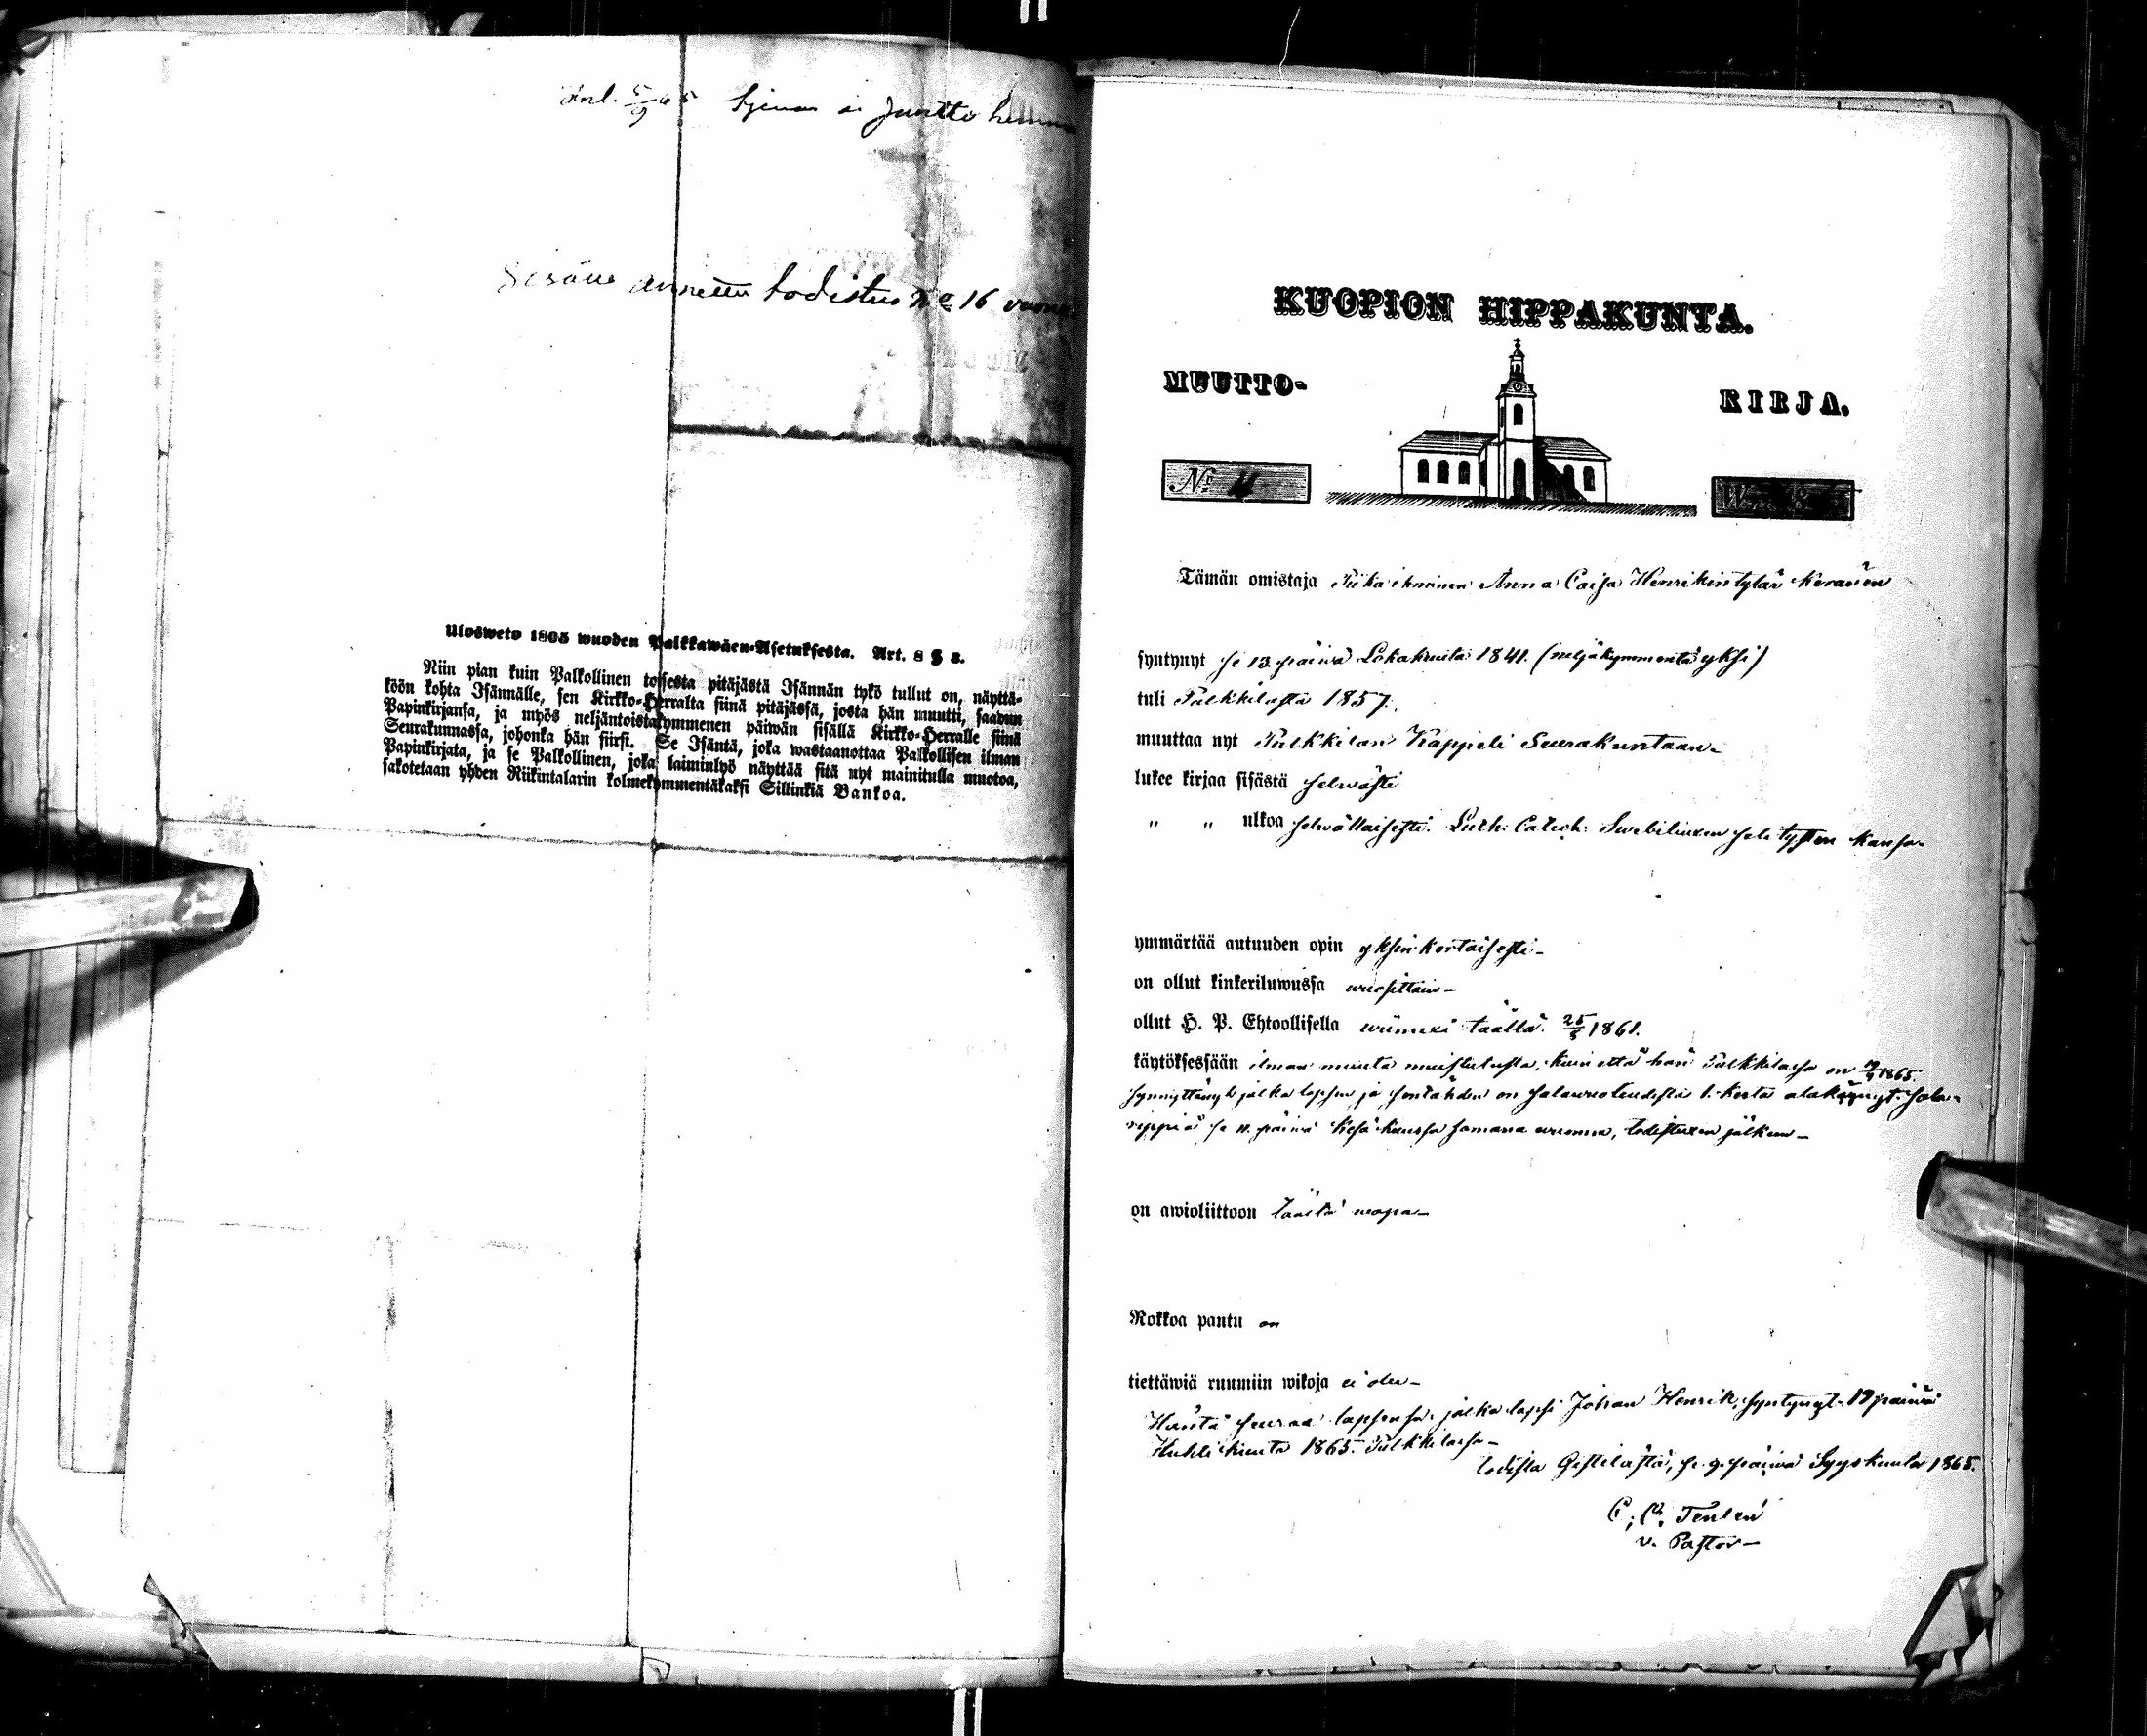 Anl. 5/9 65 Tjenar å Juntto hemma
Sisälle annettu todistus No 16 vuonna
Ulosweto 1805 wuoden Palkkawäen-Asetuksesta. Art. 8 § 3.
Niin pian kuin Palkollinen toisesta pitäjästä Isännän tykö tullut on, näyttä-
köön kohta Isännälle, sen Kirkko-Herralta siinä pitäjässä, josta hän muutti, saadun
Papinkirjansa, ja myös neljäntoistakymmenen päiwän sisällä Kirkko-Herralle siinä
Seurakunnassa, johonka hän siirsi. Se Isäntä, joka wastaanottaa Palkollisen ilman
Papinkirjata, ja se Palkollinen, joka laiminlyö näyttää sitä nyt mainitulla muotoa,
sakotetaan yhden Riikintalarin kolmekymmentäkaksi Sillinkiä Bankoa.
KUOPION HIPPAKUNTA.
MUUTTO-
KIRJA.
No 4
Wuonna 18
Tämän omistaja Piika ihminen Anna Caisa Henrikin tytär Keränen
syntynyt se 13. päiwä Lokakuuta 1841. (neljäkymmentä yksi)
tuli Pulkkilasta 1857.
muuttaa nyt Pulkkilan Kappeli Seurakuntaan
lukee kirjaa sisästä selwästi
" " ulkoa selwällaisesti. Luth. Catech. Swebiliuxen selitysten kansa.
ymmärtää autuuden opin yksinkertaisesti
on ollut kinkeriluwussa wuosittain
ollut H. P. Ehtoollisella wiimexi täällä 25/5 1861.
käytöksessään ilman muuta muistutusta, kuin että hän Pulkkilassa on 19/4 1865.
synnyttänyt jalka lapsen ja sentähden on salawuoteudesta 1. kerta alakäynyt sala-
rippiä se 11. päiwä Kesäkuussa samana wuonna, todistuxen jälkeen
on awioliittoon täältä wapa
Rokkoa pantu on
tiettäwiä ruumiin wikoja ei ole
Häntä seuraa lapsensa, jalka lapsi Johan Henrik, syntynyt 19 päiwä
Huhtikuuta 1865. Pulkkilassa
todistaa Gestilästä, se 9. päiwä Syyskuuta 1865.
v. Pastor